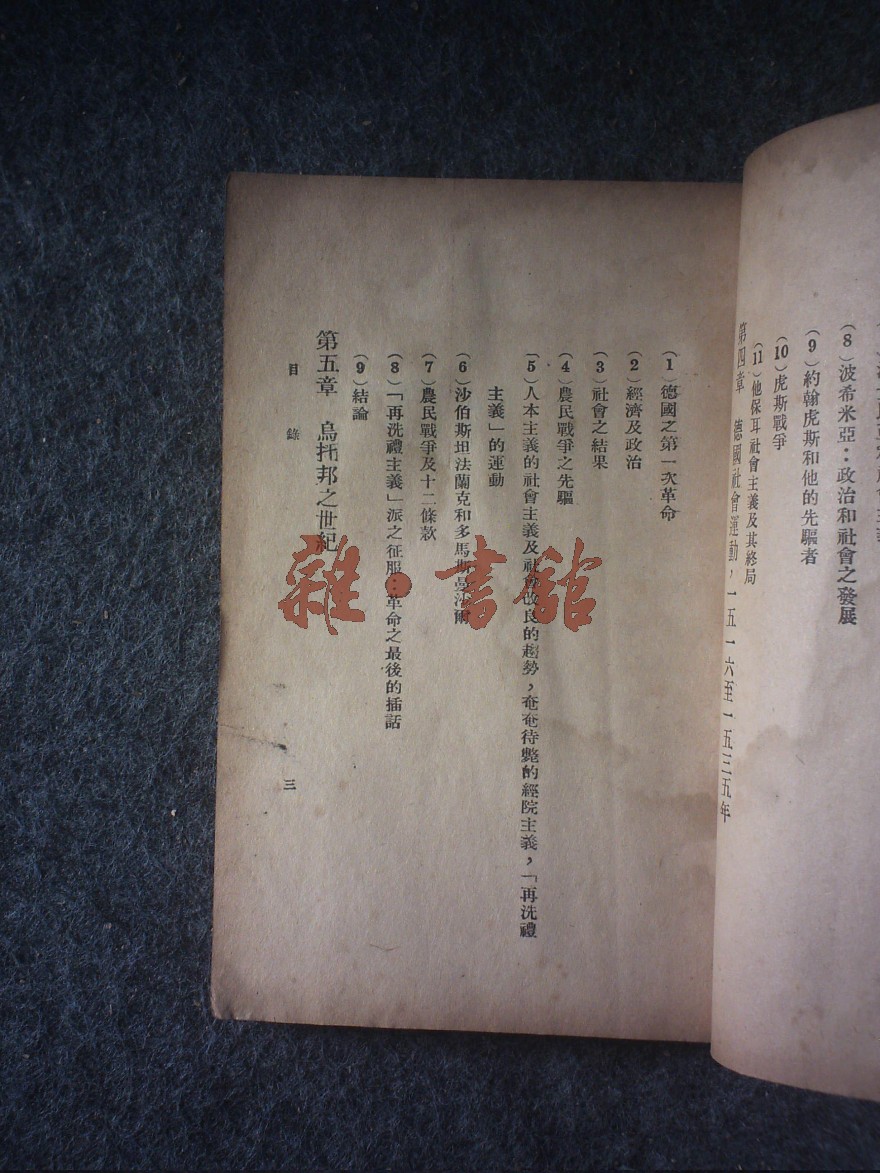 （8）波希米亞：政治和社會之發展
（9）約翰虎斯和他的先驅者
（10）虎斯戰爭
（11）他保耳社會主義及其終局
第四章　德國社會運動，一五一六至一五三五年
（1）德國之第一次革命
（2）經濟及政治
（3）社會之結果
（4）農民戰爭之先驅
（5）人本主義的社會主義及社會改良的趨勢，奄奄待斃的經院主義，「再洗禮
主義」的運動
（6）沙伯斯坦法蘭克和多馬斯曼沙爾
（7）農民戰爭及十二條款
（8）「再洗禮主義」派之征服：革命之最後的插話
（9）結論
第五章　烏托邦之世紀
目錄
三
雜·書館